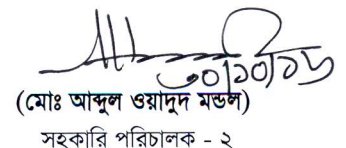 ৩০/১০/১৬
(মোঃ আব্দুল ওয়াদুদ মন্ডল)
সহকারি পরিচালক - ২